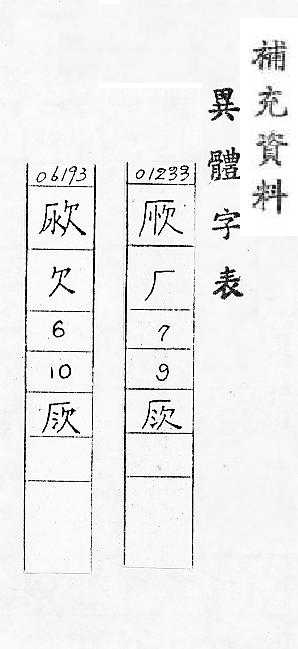 補充資料
異體字表
01233
厂
7
9
06193
欠
6
10